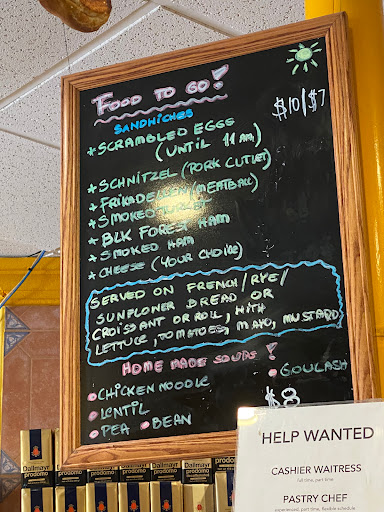 FOOD TO GO!
SANDWICHES
$10/$7
* SCRAMBLED EGGS
(UNTIL 11 AM)
* SCHNITZEL (PORK CUTLET)
* FRIKADELLEN (MEATBALL)
* SMOKED TURKEY
* BLK FOREST HAM
* SMOKED HAM
* CHEESE (YOUR CHOICE)
SERVED ON FRENCH/RYE/
SUNFLOWER BREAD OR
CROISSANT OR ROLL, WITH
LETTUCE, TOMATOES, MAYO, MUSTARD
HOME MADE SOUPS!
• CHICKEN NOODLE
• GOULASH
• LENTIL
$8
• PEA • BEAN
HELP WANTED
CASHIER WAITRESS
full time, part time
PASTRY CHEF
experienced, part time, flexible schedule
Dallmayr
prodomo
Dallmayr
prodomo
Dallmayr
prodomo
Dallmayr
prodomo
Dallmayr
prodomo